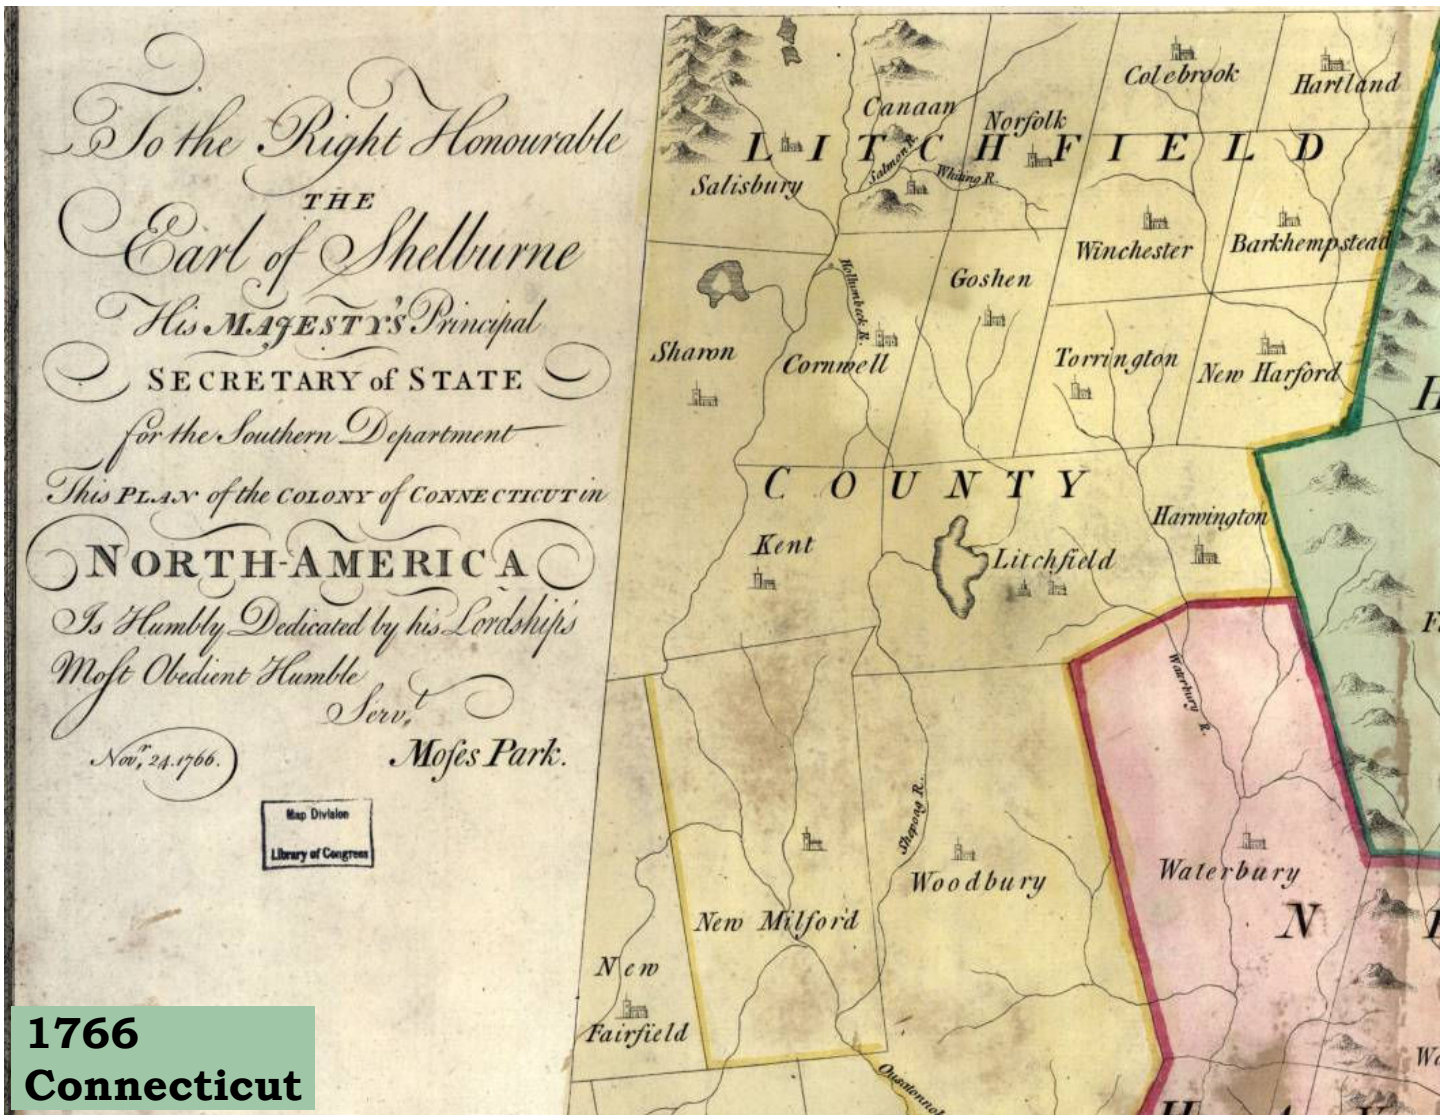 To the Right Honourable
THE
Earl of Shelburne
His MAJESTY'S Principal
SECRETARY of STATE
for the Southern Department
This PLAN of the COLONY of CONNECTICUT in
NORTH-AMERICA
Is Humbly Dedicated by his Lordship's
Most Obedient Humble
Serv.t
Moses Park.
Nov.r 24. 1766.
Map Division
Library of Congress
1766
Connecticut
LITCHFIELD
COUNTY
Colebrook
Hartland
Canaan
Norfolk
Salmon R.
Whiting R.
Salisbury
Winchester
Barkhempstead
Goshen
Hollumbick R.
Sharon
Cornwell
Torrington
New Harford
H
Harwington
Kent
Litchfield
Waterbury R.
Shepoag R.
Woodbury
Waterbury
New Milford
N
New
Fairfield